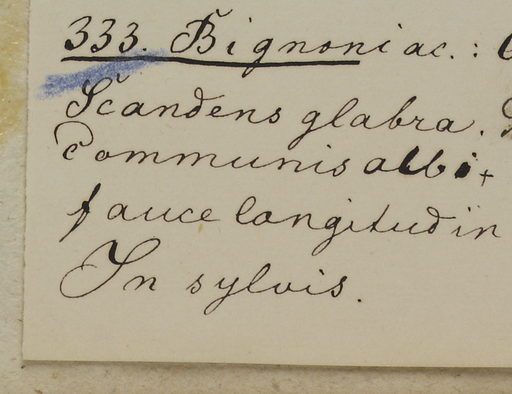 333. Bignoniac.:
Scandens glabra.
communis albi+
fauce longitudin
In sylvis.